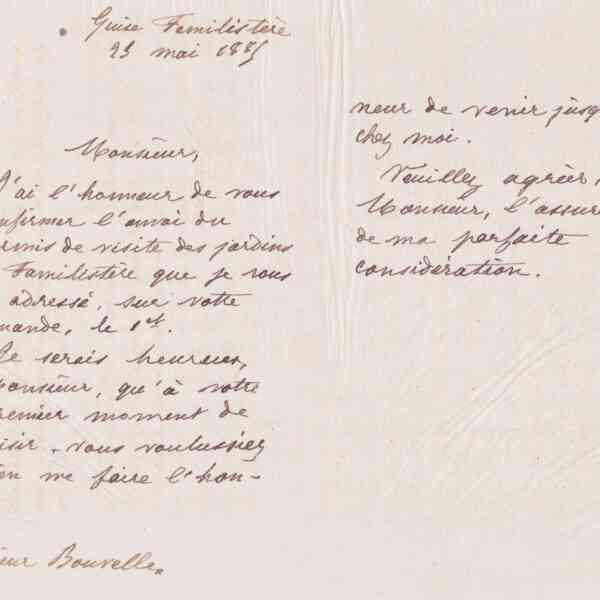 Guise Familistère
23 mai 1885
Monsieur,
J'ai l'honneur de vous
onfirmer l'envoi du
ermis de visite des jardins
Familistère que je vous
adressé, sur votre
mande, le 1er.
Je serais heureux,
onsieur, qu'à votre
remier moment de
isir, vous voulussiez
ien me faire l'hon-
neur de venir jusq
chez moi.
Veuillez agréer,
Monsieur, l'assur
de ma parfaite
considération.
ieur Bouvelle.